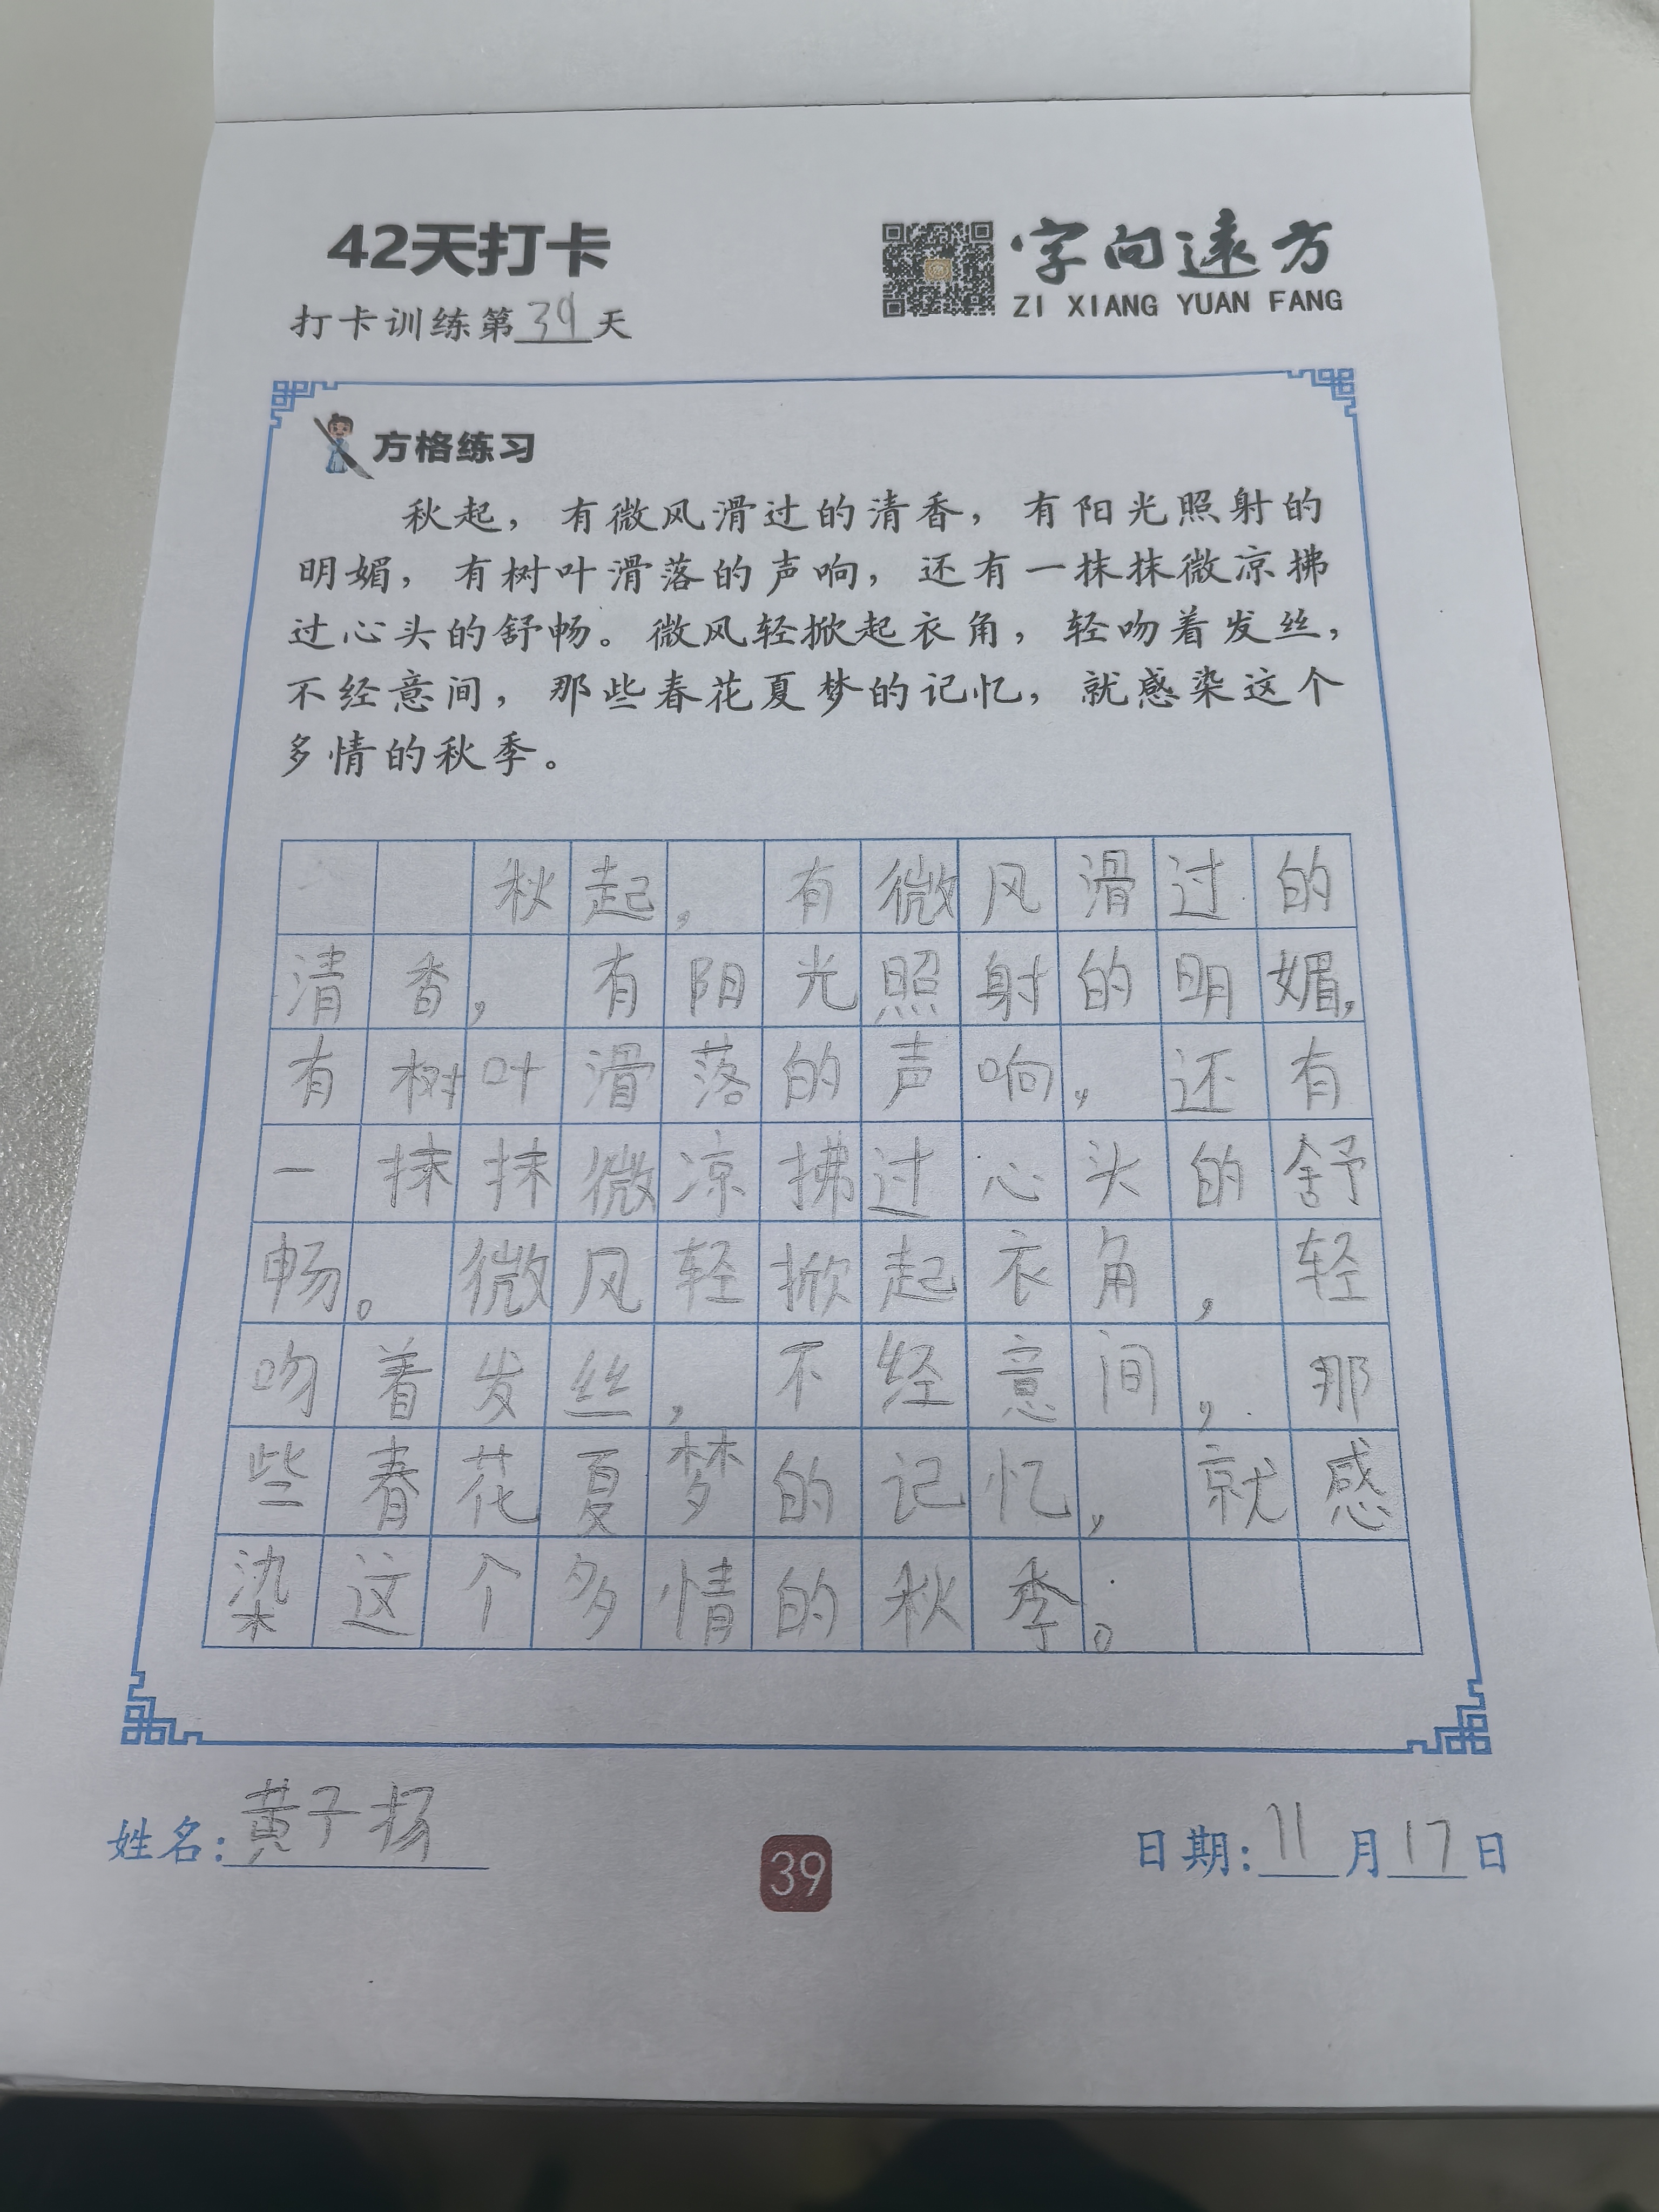 42天打卡
字向遠方
ZI XIANG YUAN FANG
打卡训练第39天
方格练习
秋起，有微风滑过的清香，有阳光照射的
明媚，有树叶滑落的声响，还有一抹抹微凉拂
过心头的舒畅。微风轻掀起衣角，轻吻着发丝，
不经意间，那些春花夏梦的记忆，就感染这个
多情的秋季。
秋起，有微风滑过的
清香，有阳光照射的明媚，
有树叶滑落的声响，还有
一抹抹微凉拂过心头的舒
畅。微风轻掀起衣角，轻
吻着发丝，不经意间，那
些春花夏梦的记忆，就感
染这个多情的秋季。
姓名：黄子扬
39
日期：11月17日